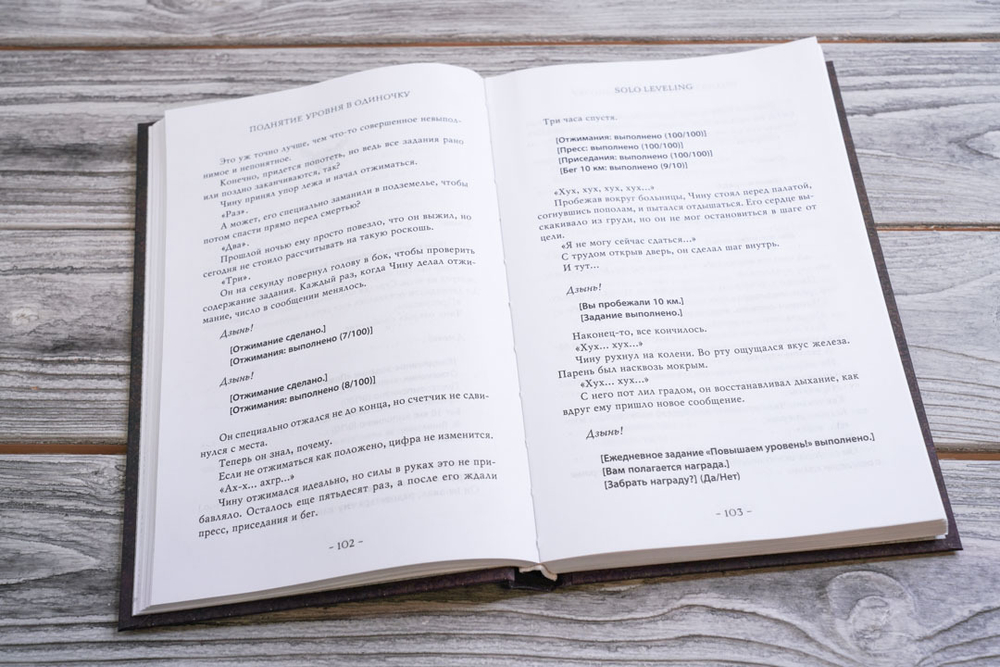 ПОДНЯТИЕ УРОВНЯ В ОДИНОЧКУ
Это уж точно лучше, чем что-то совершенное невыпол-
нимое и непонятное.
Конечно, придется попотеть, но ведь все задания рано
или поздно заканчиваются, так?
Чину принял упор лежа и начал отжиматься.
«Раз».
А может, его специально заманили в подземелье, чтобы
потом спасти прямо перед смертью?
«Два».
Прошлой ночью ему просто повезло, что он выжил, но
сегодня не стоило рассчитывать на такую роскошь.
«Три».
Он на секунду повернул голову в бок, чтобы проверить
содержание задания. Каждый раз, когда Чину делал отжи-
мание, число в сообщении менялось.
Дзынь!
[Отжимание сделано.]
[Отжимания: выполнено (7/100)]
Дзынь!
[Отжимание сделано.]
[Отжимания: выполнено (8/100)]
Он специально отжался не до конца, но счетчик не сдви-
нулся с места.
Теперь он знал, почему.
Если не отжиматься как положено, цифра не изменится.
«Ах-х... ахгр...»
Чину отжимался идеально, но силы в руках это не при-
бавляло. Осталось еще пятьдесят раз, а после его ждали
пресс, приседания и бег.
– 102 –
SOLO LEVELING
Три часа спустя.
[Отжимания: выполнено (100/100)]
[Пресс: выполнено (100/100)]
[Приседания: выполнено (100/100)]
[Бег 10 км: выполнено (9/10)]
«Хух, хух, хух, хух...»
Пробежав вокруг больницы, Чину стоял перед палатой,
согнувшись пополам, и пытался отдышаться. Его сердце вы-
скакивало из груди, но он не мог остановиться в шаге от
цели.
«Я не могу сейчас сдаться...»
С трудом открыв дверь, он сделал шаг внутрь.
И тут...
Дзынь!
[Вы пробежали 10 км.]
[Задание выполнено.]
Наконец-то, все кончилось.
«Хух... хух...»
Чину рухнул на колени. Во рту ощущался вкус железа.
Парень был насквозь мокрым.
«Хух... хух...»
С него пот лил градом, он восстанавливал дыхание, как
вдруг ему пришло новое сообщение.
Дзынь!
[Ежедневное задание «Повышаем уровень!» выполнено.]
[Вам полагается награда.]
[Забрать награду?] (Да/Нет)
– 103 –